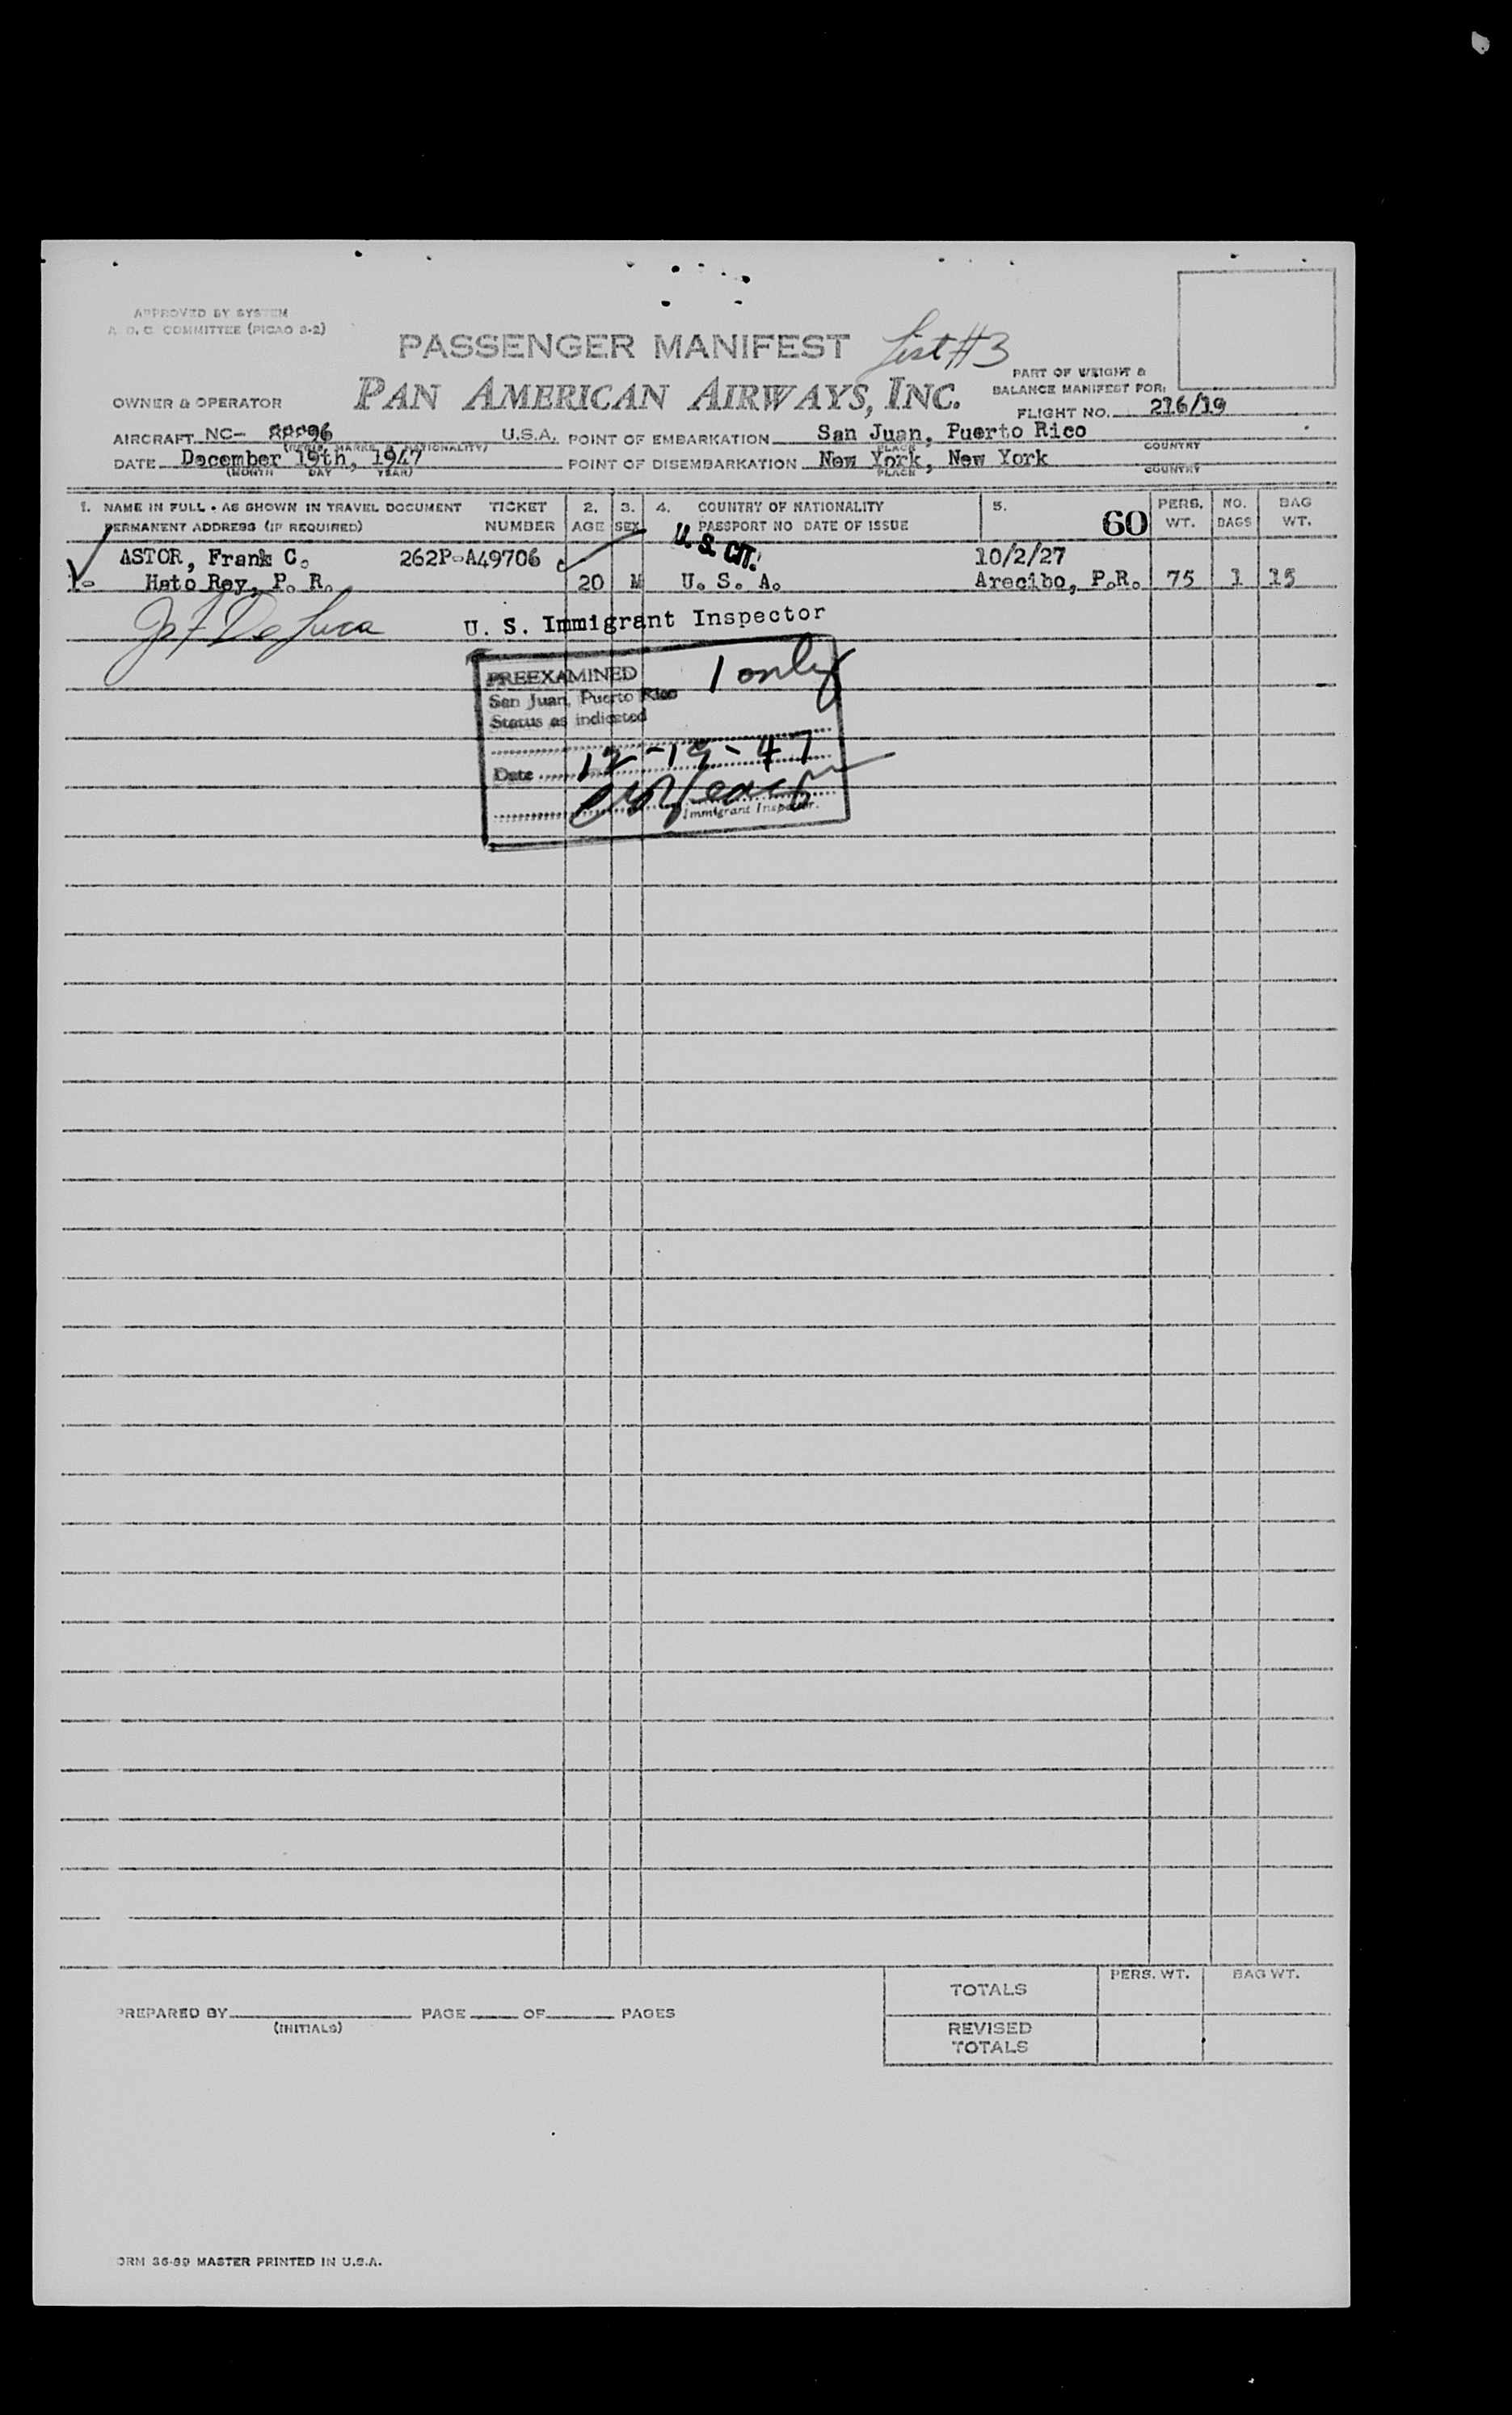 APPROVED BY SYSTEM
A. D. C. COMMITTEE (PICAO 3-2)
PASSENGER MANIFEST List #3
PART OF WEIGHT &
BALANCE MANIFEST FOR:
OWNER & OPERATOR PAN AMERICAN AIRWAYS, INC.
FLIGHT NO. 216/19
AIRCRAFT NC- 88896 U.S.A. POINT OF EMBARKATION San Juan, Puerto Rico
MARKS & NATIONALITY) PLACE COUNTRY
DATE December 19th, 1947 POINT OF DISEMBARKATION New York, New York
(MONTH DAY YEAR) PLACE COUNTRY
1. NAME IN FULL - AS SHOWN IN TRAVEL DOCUMENT TICKET 2. 3. 4. COUNTRY OF NATIONALITY 5. PERS. NO. BAG
PERMANENT ADDRESS (IF REQUIRED) NUMBER AGE SEX PASSPORT NO DATE OF ISSUE 60 WT. BAGS WT.
U. S. CIT.
ASTOR, Frank C. 262P-A49706 10/2/27
1- Hato Rey, P. R. 20 M U. S. A. Arecibo, P.R. 75 1 15
U. S. Immigrant Inspector
PREEXAMINED 1 only
San Juan, Puerto Rico
Status as indicated
Date 12-19-47
Immigrant Inspector.
TOTALS PERS. WT. BAG WT.
PREPARED BY PAGE OF PAGES
(INITIALS)
REVISED
TOTALS
ORM 36-99 MASTER PRINTED IN U.S.A.